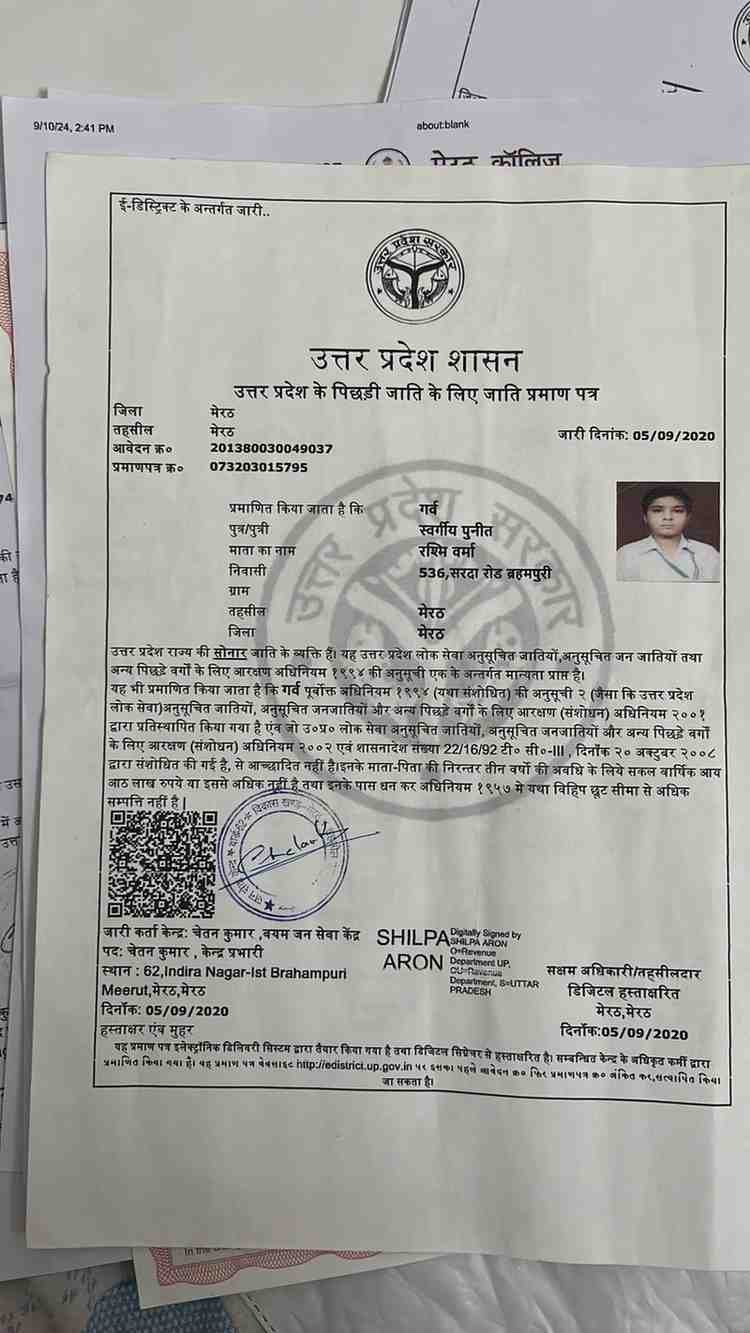 9/10/24, 2:41 PM
about:blank
मेरठ कॉलिज
ई-डिस्ट्रिक्ट के अन्तर्गत जारी..
उत्तर प्रदेश सरकार
उत्तर प्रदेश शासन
उत्तर प्रदेश के पिछड़ी जाति के लिए जाति प्रमाण पत्र
जिला मेरठ
तहसील मेरठ
आवेदन क्र० 201380030049037
जारी दिनांक: 05/09/2020
प्रमाणपत्र क्र० 073203015795
प्रमाणित किया जाता है कि गर्व
पुत्र/पुत्री स्वर्गीय पुनीत
माता का नाम रश्मि वर्मा
निवासी 536,सरदा रोड ब्रहमपुरी
ग्राम
तहसील मेरठ
जिला मेरठ
उत्तर प्रदेश राज्य की सोनार जाति के व्यक्ति हैं। यह उत्तर प्रदेश लोक सेवा अनुसूचित जातियों,अनुसूचित जन जातियों तथा
अन्य पिछड़े वर्गों के लिए आरक्षण अधिनियम १९९४ की अनुसूची एक के अन्तर्गत मान्यता प्राप्त है।
यह भी प्रमाणित किया जाता है कि गर्व पूर्वोक्त अधिनियम १९९४ (यथा संशोधित) की अनुसूची २ (जैसा कि उत्तर प्रदेश
लोक सेवा)अनुसूचित जातियों, अनुसूचित जनजातियों और अन्य पिछड़े वर्गों के लिए आरक्षण (संशोधन) अधिनियम २००१
द्वारा प्रतिस्थापित किया गया है एंव जो उ०प्र० लोक सेवा अनुसूचित जातियों, अनुसूचित जनजातियों और अन्य पिछड़े वर्गों
के लिए आरक्षण (संशोधन) अधिनियम २००२ एवं शासनादेश संख्या 22/16/92 टी० सी०-III , दिनॉक २० अक्टुबर २००८
द्वारा संशोधित की गई है, से आच्छादित नहीं है।इनके माता-पिता की निरन्तर तीन वर्षो की अवधि के लिये सकल वार्षिक आय
आठ लाख रुपये या इससे अधिक नहीं है तथा इनके पास धन कर अधिनियम १९५७ मे यथा विहिप छूट सीमा से अधिक
सम्पत्ति नहीं है।
जारी कर्ता केन्द्र: चेतन कुमार ,वयम जन सेवा केंद्र
पद: चेतन कुमार , केन्द्र प्रभारी
स्थान : 62,Indira Nagar-Ist Brahampuri
Meerut,मेरठ,मेरठ
दिनॉक: 05/09/2020
हस्ताक्षर एंव मुहर
SHILPA
ARON
Digitally Signed by
SHILPA ARON
O=Revenue
Department UP,
OU=Revenue
Department, S=UTTAR
PRADESH
सक्षम अधिकारी/तहसीलदार
डिजिटल हस्ताक्षरित
मेरठ,मेरठ
दिनॉक:05/09/2020
यह प्रमाण पत्र इलेक्ट्रॉनिक डिलिवरी सिस्टम द्वारा तैयार किया गया है तथा डिजिटल सिग्नेचर से हस्ताक्षरित है। सम्बन्धित केन्द्र के अधिकृत कर्मी द्वारा
प्रमाणित किया गया है। यह प्रमाण पत्र वेबसाइट http://edistrict.up.gov.in पर इसका पहले आवेदन क्र० फिर प्रमाणपत्र क्र० अंकित कर,सत्यापित किया
जा सकता है।